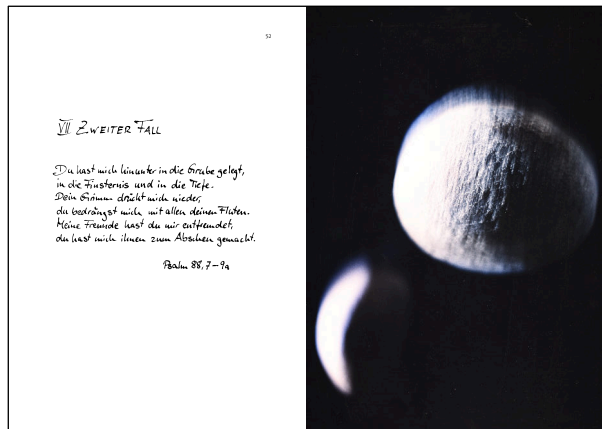 52
VII ZWEITER FALL
Du hast mich hinunter in die Grube gelegt,
in die Finsternis und in die Tiefe.
Dein Grimm drückt mich nieder,
du bedrängst mich mit allen deinen Fluten.
Meine Freunde hast du mir entfremdet,
du hast mich ihnen zum Abscheu gemacht.
Psalm 88, 7-9a